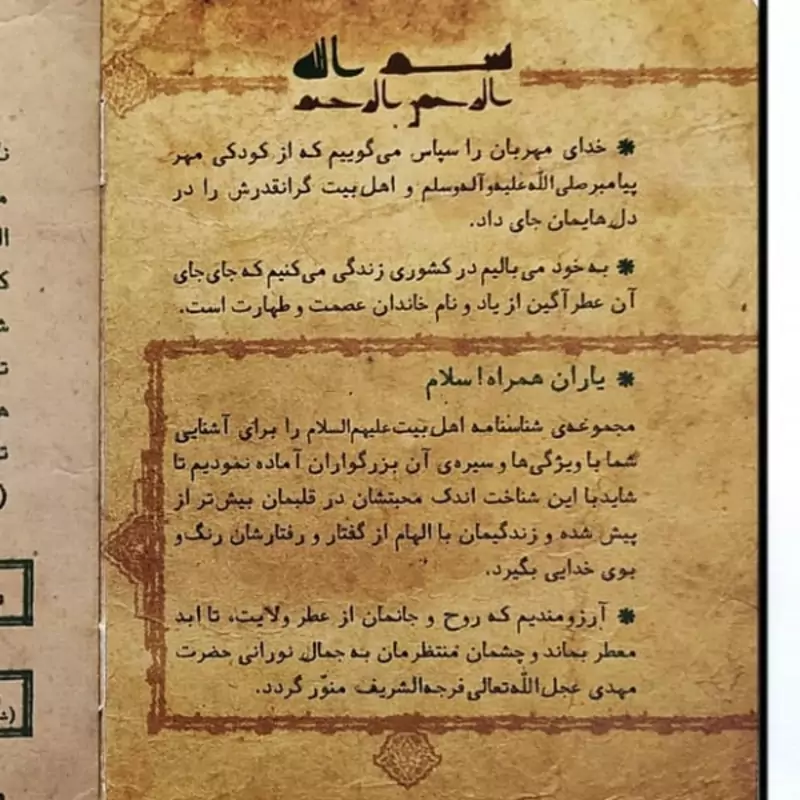 بسم الله
الرحمن الرحیم
* خدای مهربان را سپاس می‌گوییم که از کودکی مهر
پیامبر صلی‌الله‌علیه‌وآله‌وسلم و اهل‌بیت گرانقدرش را در
دل‌هایمان جای داد.
* به‌خود می‌بالیم در کشوری زندگی می‌کنیم که جای‌جای
آن عطرآگین از یاد و نام خاندان عصمت و طهارت است.
* یاران همراه! سلام
مجموعه‌ی شناسنامه اهل‌بیت علیهم‌السلام را برای آشنایی
شما با ویژگی‌ها و سیره‌ی آن بزرگواران آماده نمودیم تا
شاید با این شناخت اندک محبتشان در قلبمان بیش‌تر از
پیش شده و زندگیمان با الهام از گفتار و رفتارشان رنگ و
بوی خدایی بگیرد.
* آرزومندیم که روح و جانمان از عطر ولایت، تا ابد
معطر بماند و چشمان منتظرمان به جمال نورانی حضرت
مهدی عجل‌الله‌تعالی‌فرجه‌الشریف منوّر گردد.